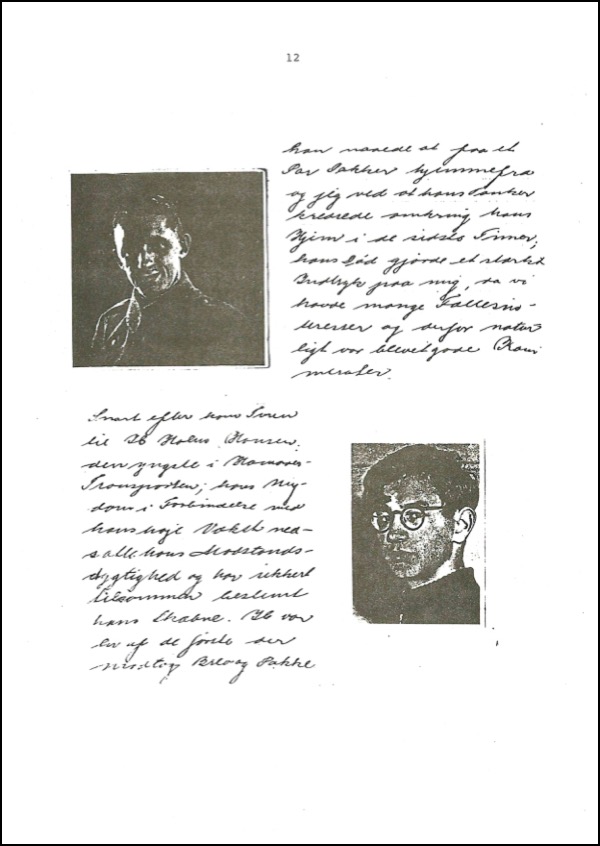 12
han naaede at faa et
Par Pakker hjemmefra
og jeg ved at hans Tanker
kredsede omkring hans
Hjem i de sidste Timer;
hans Død gjorde et stærkt
Indtryk paa mig, da vi
havde mange Fællesin-
teresser og derfor natur
ligt var blevet gode Kam
merater.
Snart efter kom Turen
til Ib Holm Hansen,
den yngste i Hannover-
Transporten; hans Ung-
dom i Forbindelse med
hans høje Vækst ned-
satte hans Modstands-
dygtighed og har sikkert
tilsammen bestemt
hans Skæbne. Ib var
en af de første der
modtog Brev og Pakke